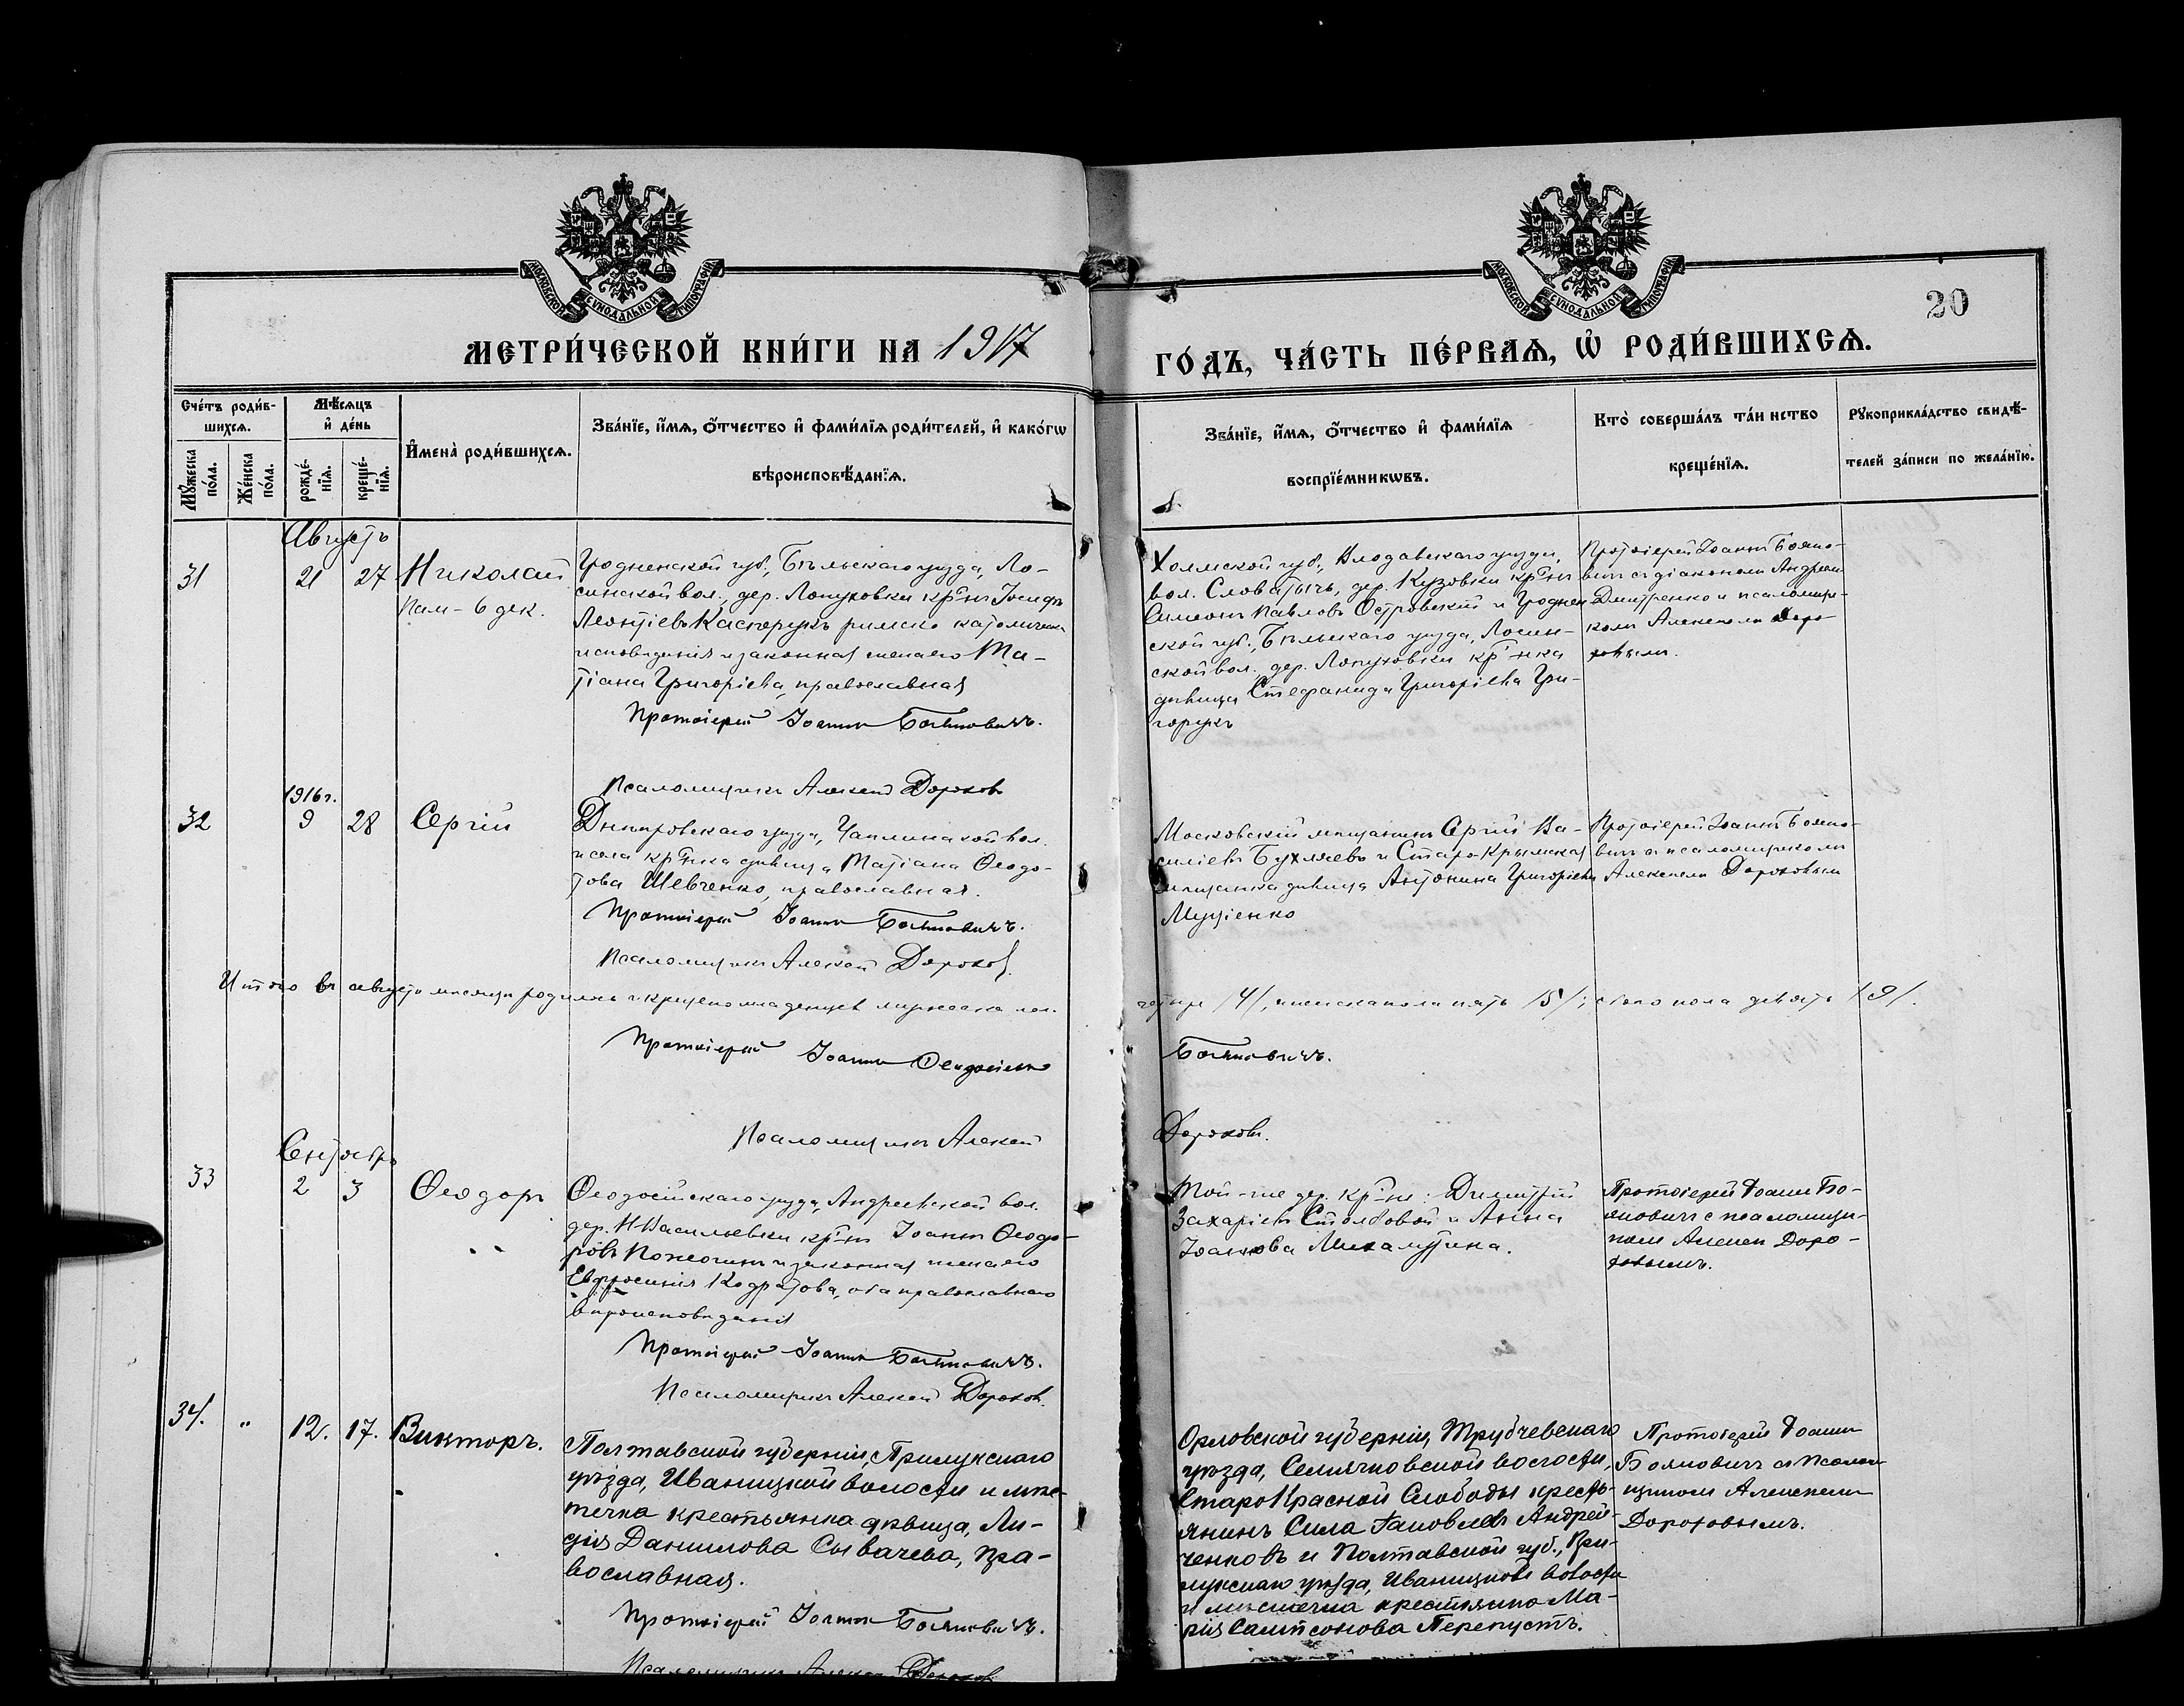 МОСКОВСКОЙ СѴНОДАЛЬНОЙ ТИПОГРАФІИ
МОСКОВСКОЙ СѴНОДАЛЬНОЙ ТИПОГРАФІИ
20
МЕТРИ́ЧЕСКОЙ КНИ́ГИ НА 1917
ГО́ДЪ, ЧА́СТЬ ПЕ́РВАѦ, Ѡ҆ РОДИ́ВШИХСѦ.
Сче́тъ роди́в-
шихсѧ.
Мꙋ́жеска по́ла.
Же́нска по́ла.
Мѣ́сѧцъ
и҆ де́нь
рожде́-
нїѧ.
креще́-
нїѧ.
И҆мена̀ роди́вшихсѧ.
Зва́нїе, и҆́мѧ, о҆́тчество и҆ фами́лїѧ роди́телей, и҆ како́гѡ
вѣроисповѣ́данїѧ.
Зва́нїе, и҆́мѧ, о҆́тчество и҆ фами́лїѧ
воспрїе́мникѡвъ.
Кто̀ соверша́лъ та́инство
креще́нїѧ.
Рꙋкоприкла́дство свидѣ́-
телей за́писи по жела́нїю.
Августъ
31
21
27
Николай
Пам- 6 дек.
Гродненской губ., Бѣльскаго уѣзда, Ло-
синской вол., дер. Лопуховки кр-нъ Іосифъ
Леонтіевъ Касперукъ римско католическ
исповѣданія и законная жена его Та-
тіана Григоріева, православная
Протоіерей Іоаннъ Бояновичъ.
Псаломщикъ Алексій Дороховъ
Холмской губ., Влодавскаго уѣзда,
вол. Словатычъ, дер. Кузовки кр-нъ
Симеонъ Павловъ Островскій и Гроднен
ской губ., Бѣльскаго уѣзда, Лосин-
ской вол., дер. Лопуховки кр-нка
дѣвица Стефанида Григоріева Гри-
горукъ
Протоіерей Іоаннъ Бояно-
вичъ съ діакономъ Андреемъ
Дмитренко и псаломщи-
комъ Алексіемъ Доро-
ховымъ.
1916 г.
32
9
28
Сергій
Днѣпровскаго уѣзда, Чаплинской вол.
и села кр-нка дѣвица Татіана Ѳеодо-
това Шевченко, православная.
Протоіерей Іоаннъ Бояновичъ.
Псаломщикъ Алексій Дороховъ.
Московскій мѣщанинъ Сергій Ва-
силіевъ Бухляевъ и Старо-Крымская
мѣщанка дѣвица Антонина Григоріева
Муціенко
Протоіерей Іоаннъ Бояно-
вичъ съ псаломщикомъ
Алексіемъ Дороховымъ
Итого въ августѣ мѣсяцѣ родилось и крещено младенцевъ мужеска пол.
четыре /4/, женска пола пять /5/; обоего пола девять /9/.
Протоіерей Іоаннъ Ѳеодосіевъ
Бояновичъ.
Псаломщикъ Алексій
Дороховъ.
Сентябрь
33
2
3
Ѳеодоръ
Ѳеодосійскаго уѣзда, Андреевской вол.
дер. Н-Васильевки кр-нъ Іоаннъ Ѳеодо-
ровъ Пожогинъ и законная жена его
Евфросинія Кодратова, оба православнаго
вѣроисповѣданія
Протоіерей Іоаннъ Бояновичъ.
Псаломщикъ Алексій Дороховъ.
Той-же дер. кр-не: Димитрій
Захаріевъ Столбовой и Анна
Іоаннова Михалуткина.
Протоіерей Іоаннъ Бо-
яновичъ с псаломщи-
комъ Алексѣем Доро-
ховымъ.
34.
"
12.
17.
Викторъ.
Полтавской губерніи, Прилукскаго
уѣзда, Иваницкой волости и мѣс-
течка крестьянка дѣвица, Ли-
дія Данилова Сывачева, пра-
вославная.
Протоіерей Іоаннъ Бояновичъ.
Псаломщикъ Алексій Дороховъ
Орловской губерніи, Трубчевскаго
уѣзда, Семячковской волости,
Старо Красной Слободы кресть-
янинъ Сила Іаковлевъ Андрей-
ченковъ и Полтавской губ., При-
лукскаго уѣзда, Иваницкой волости
и мѣстечка крестьянка Ма-
рія Сампсонова Перепустъ.
Протоіерей Іоаннъ
Бояновичъ съ Псалом-
щикомъ Алексіемъ
Дороховымъ.